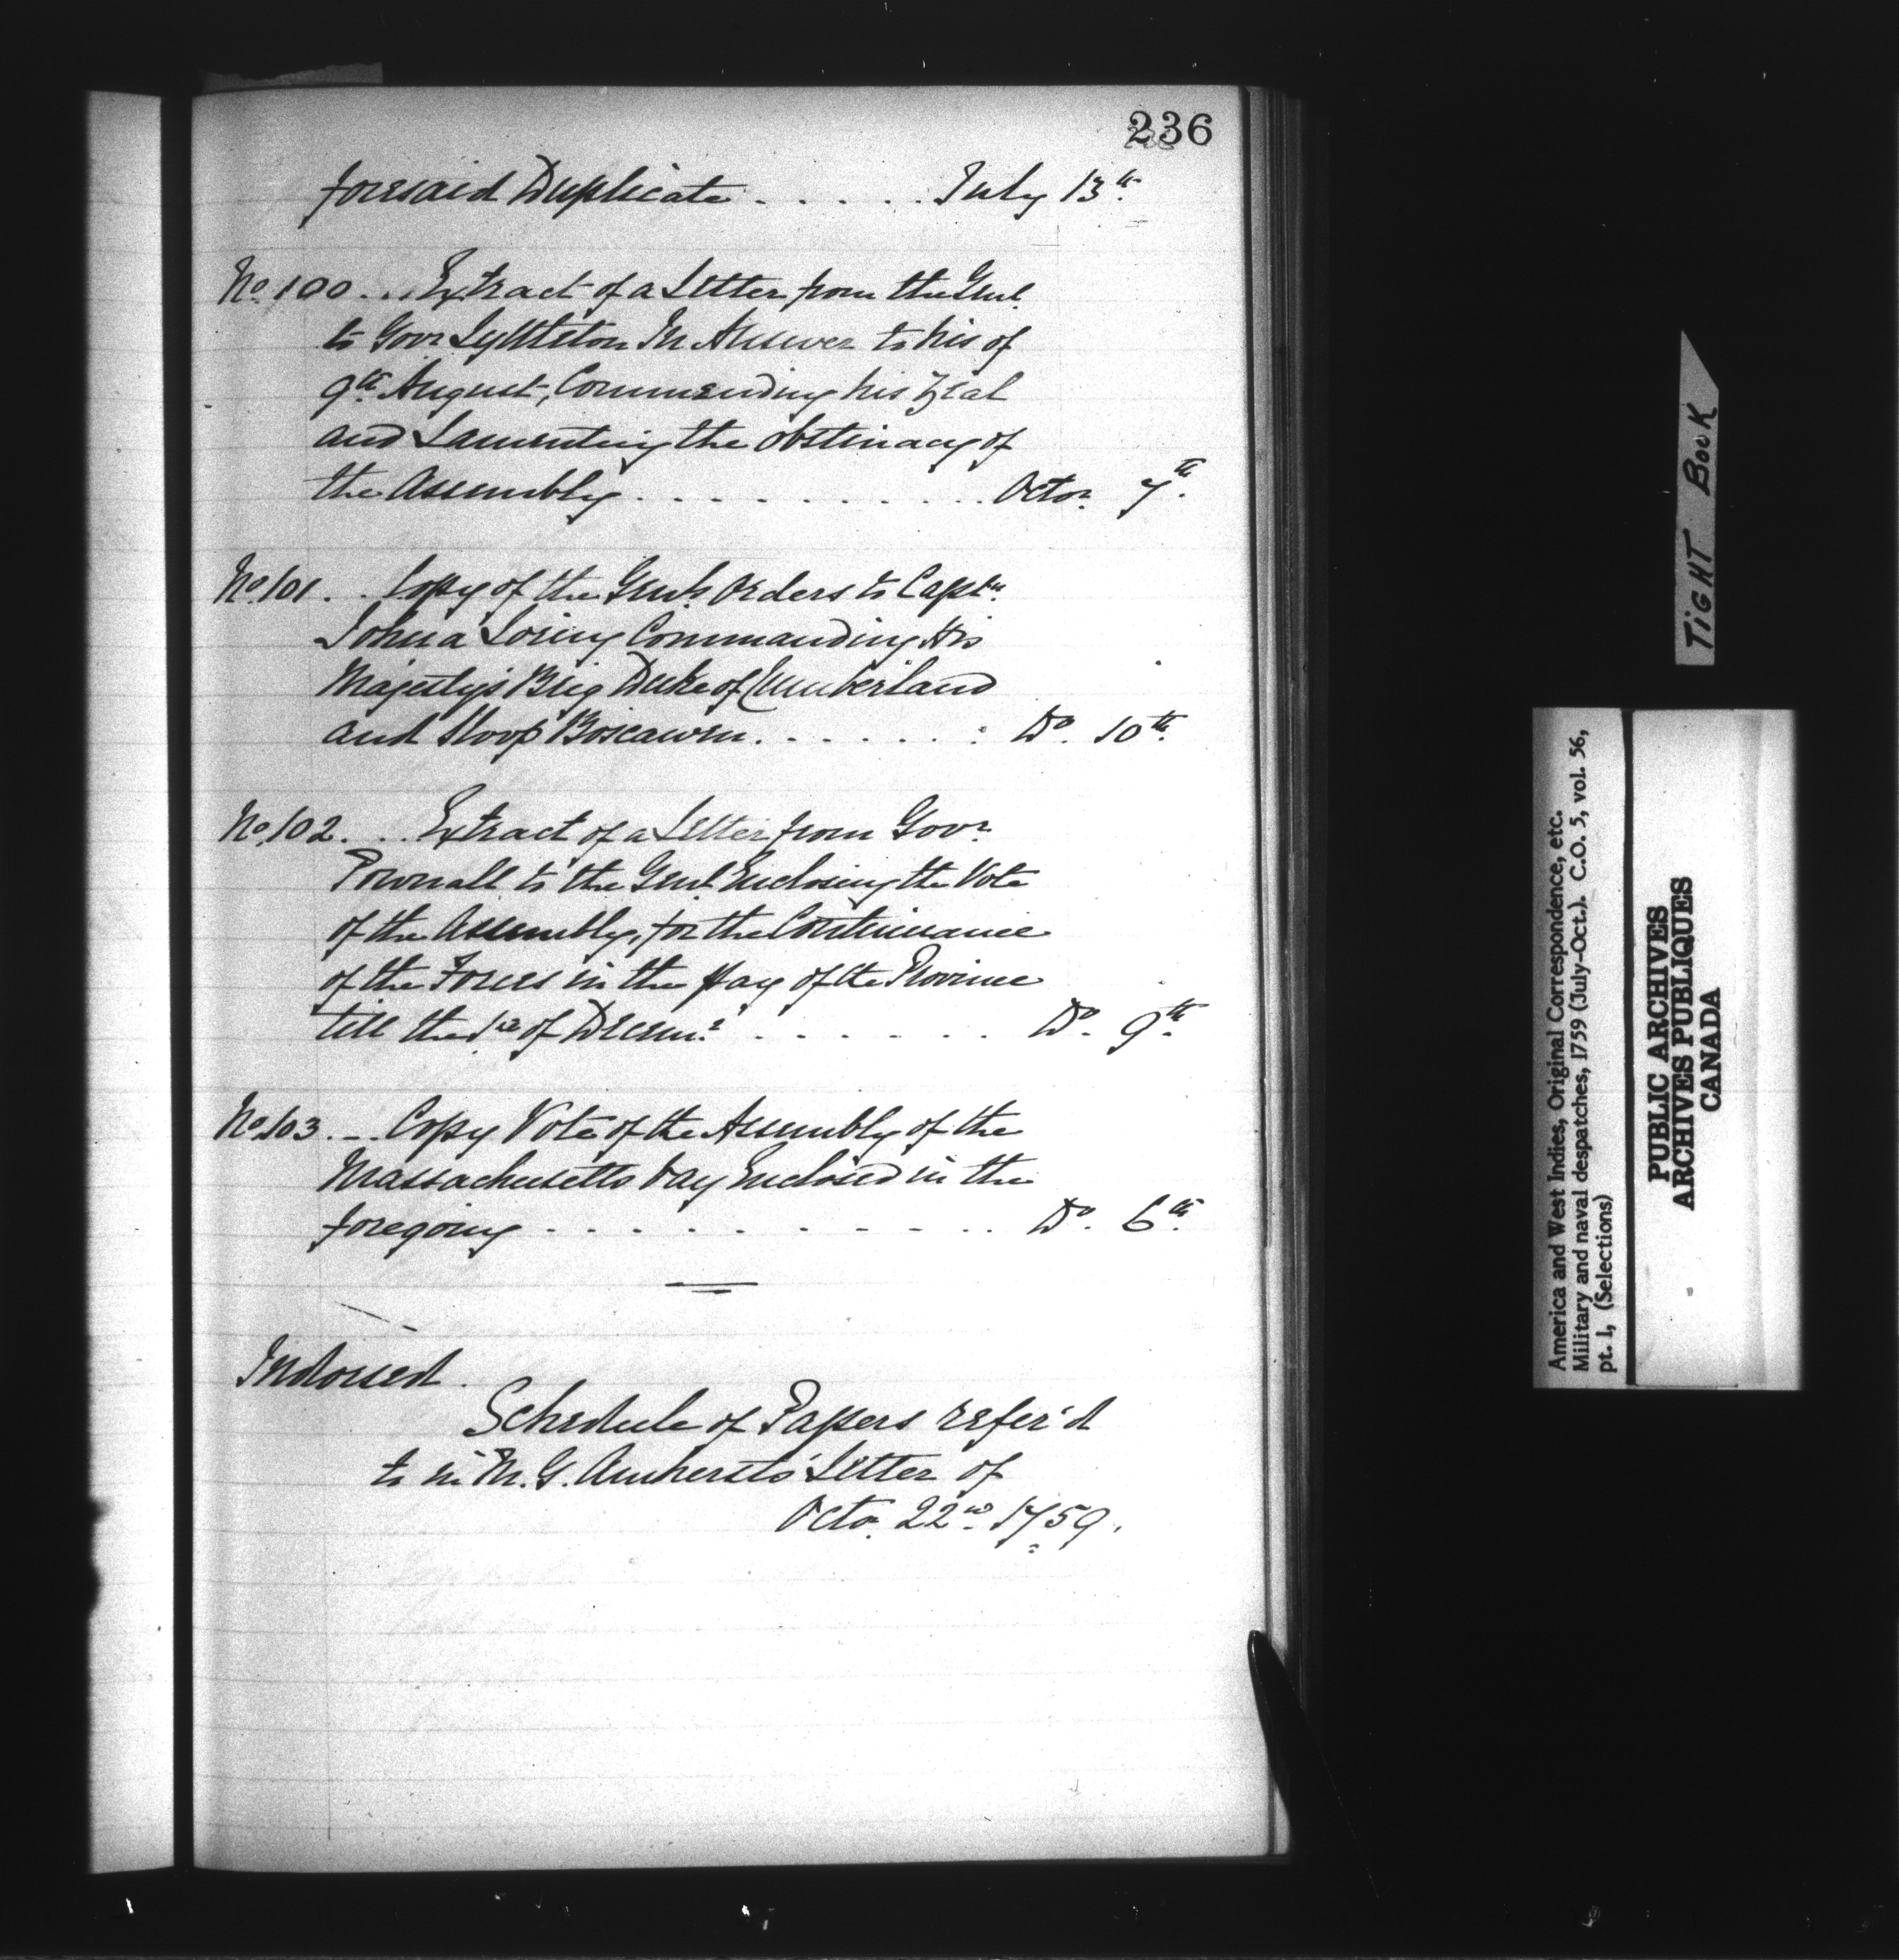 236
foresaid Duplicate . . . . . . July 13th
No. 100 . . . Extract of a Letter from the Genl
to Govr Lyttleton In Answer to his of
9th August, Commending his Zeal
and Lamenting the obstinacy of
the Assembly . . . . . . . . . . . Octor. 7th.
No. 101 . . Copy of the Genls Orders to Captn.
Joshua Loring Commanding His
Majesty's Brig Duke of Cumberland
and Sloop Boscawen . . . . . . : Do. 10th.
No. 102 . . . Extract of a Letter from Govr.
Pownall to the Genl Enclosing the Vote
of the Assembly, for the Continuance
of the Forces in the pay of the Province
till the 1st of Decemr. . . . . . . . Do. 9th.
No. 103 . . . Copy Vote of the Assembly of the
Massachusetts bay Enclosed in the
foregoing . . . . . . . . . . . Do. 6th.
Indorsed.
Schedule of Papers refer'd
to in M. G. Amherst's Letter of
Octo. 22nd. 1759.
TIGHT BOOK
America and West Indies, Original Correspondence, etc.
Military and naval despatches, 1759 (July-Oct.). C.O. 5, vol. 56,
pt. 1, (Selections)
PUBLIC ARCHIVES
ARCHIVES PUBLIQUES
CANADA